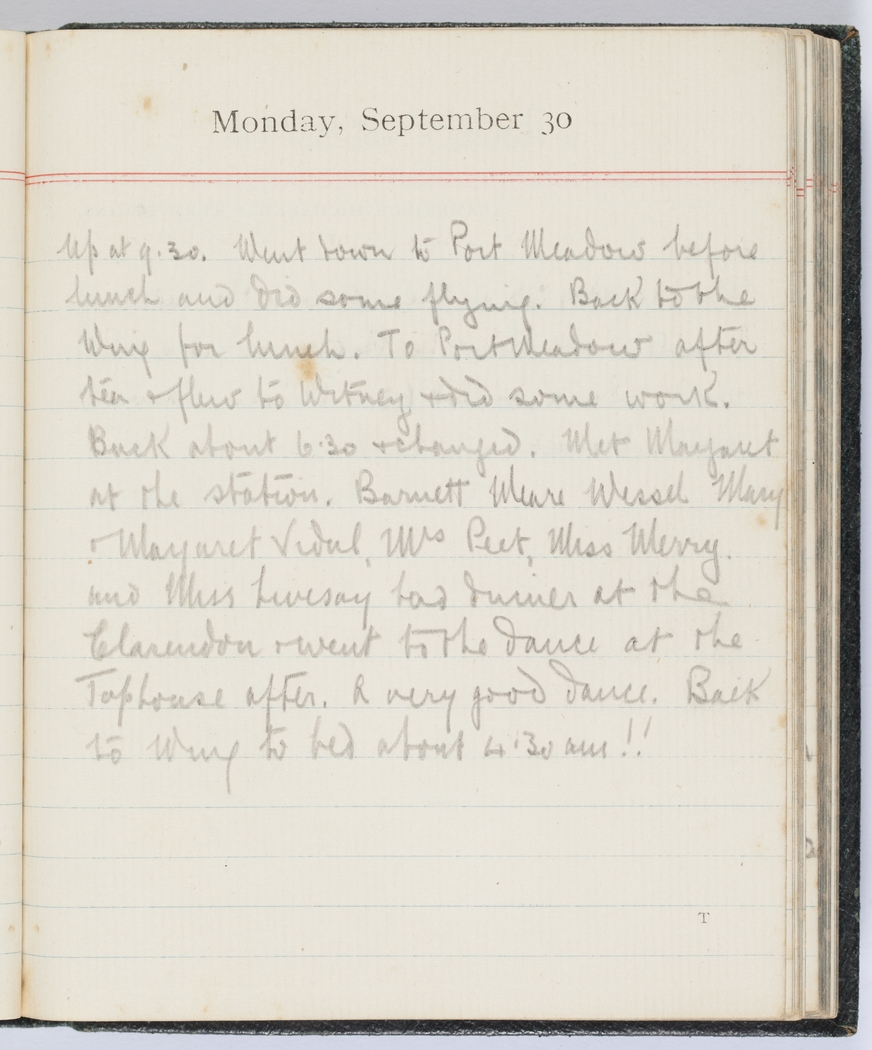 Monday, September 30
Up at 9.30. Went down to Port Meadow before
lunch and did some flying. Back to the
Wing for lunch. To Port Meadow after
tea & flew to Witney & did some work.
Back about 6.30 & changed. Met Margaret
at the station. Barnett Meare Wessel Mary
& Margaret Vidal, Mrs Peet, Miss Merry.
and Miss Livesay had dinner at the
Clarendon & went to the dance at the
Taphouse after. A very good dance. Back
to Wing to bed about 4.30 am!!
T